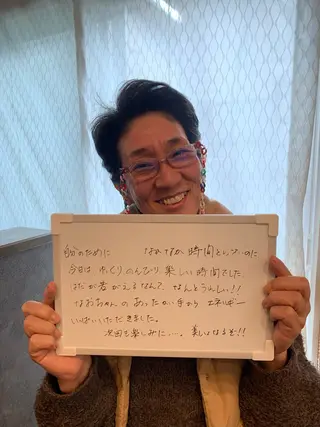 自分のために なかなか時間とれないのに
今日は ゆっくりのんびり 楽しい時間でした。
はだが若がえるなんて、なんとうれしい!!
なおちゃんの あったかい手から エネルギー
いっぱいいただきました。
次回も楽しみに..... 美しくなるぞ!!